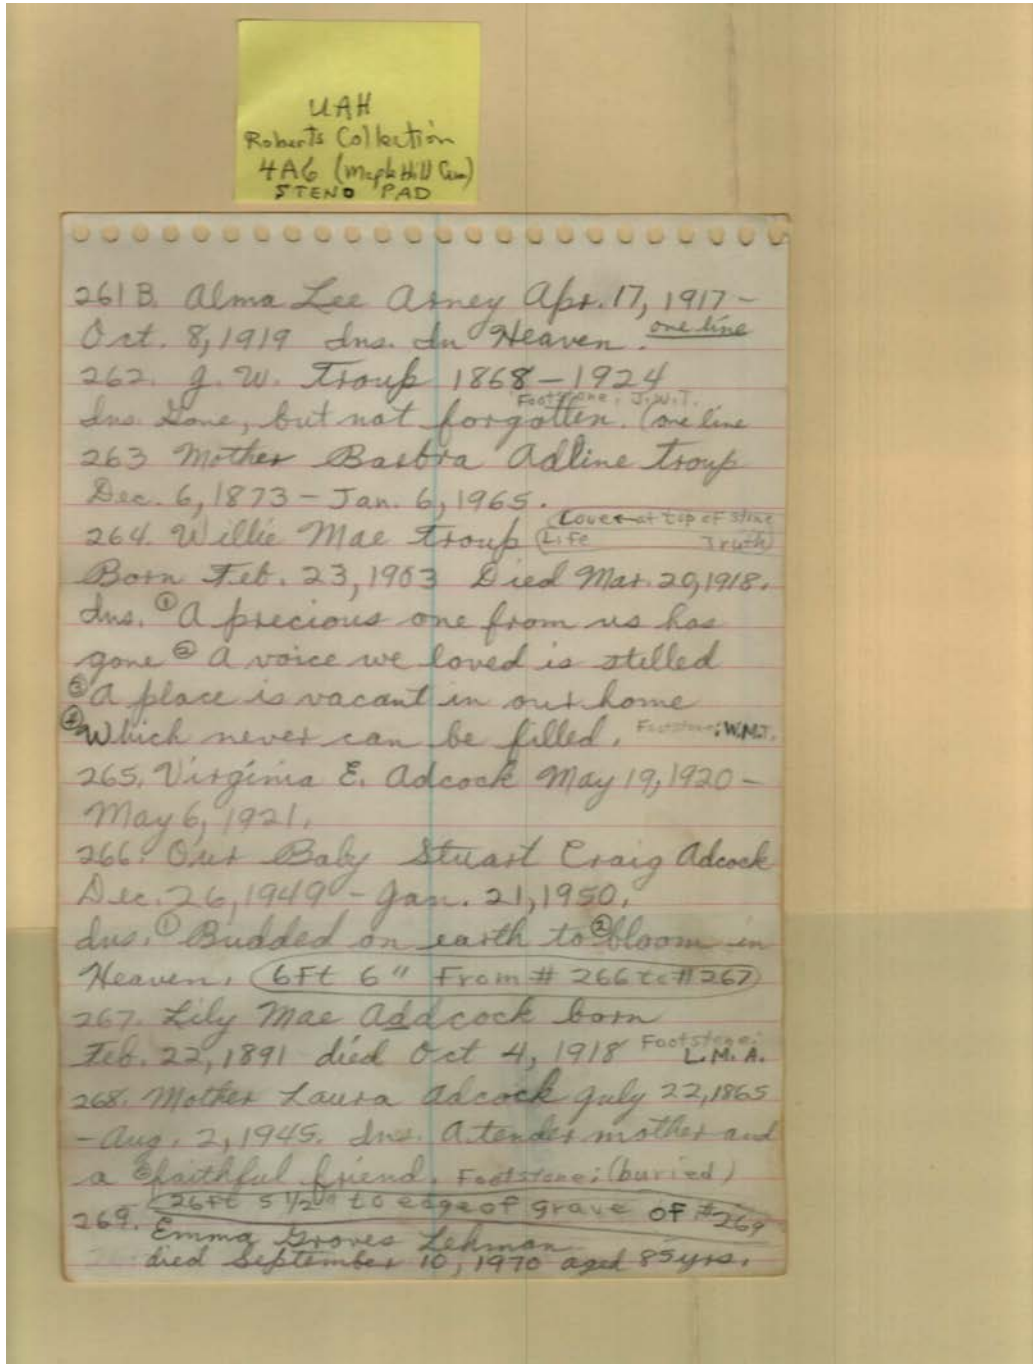 UAH
Roberts Collection
4A6 (Maple Hill Cem)
STENO PAD
261 B. Alma Lee Arney Apr. 17, 1917 –
Oct. 8, 1919 Ins. In Heaven. one line
262. J. W. Troup 1868 – 1924
Footstone: J.W.T.
Ins. Gone, but not forgotten. (one line
263 Mother Barbra Adline Troup
Dec. 6, 1873 – Jan. 6, 1965.
Love at top of stone
264. Willie Mae Troup (Life Truth)
Born Feb. 23, 1903 Died Mar. 20, 1918.
Ins. ① A precious one from us has
gone ② A voice we loved is stilled
③ A place is vacant in our home
④ Which never can be filled. Footstone: W.M.T.
265. Virginia E. Adcock May 19, 1920 –
May 6, 1921.
266. Our Baby Stuart Craig Adcock
Dec. 26, 1949 – Jan. 21, 1950.
Ins. ① Budded on earth to ② bloom in
Heaven. (6Ft 6" From # 266 to # 267)
267. Lily Mae Addcock born
Feb. 22, 1891 died Oct 4, 1918 Footstone:
L.M.A.
268. Mother Laura Adcock July 22, 1865
– Aug. 2, 1945. Ins. A tender mother and
a ② faithful friend. Footstone: (buried)
26Ft 5 1/2" to edge of grave OF #269
269. Emma Groves Lehman
died September 10, 1970 aged 85 yrs.